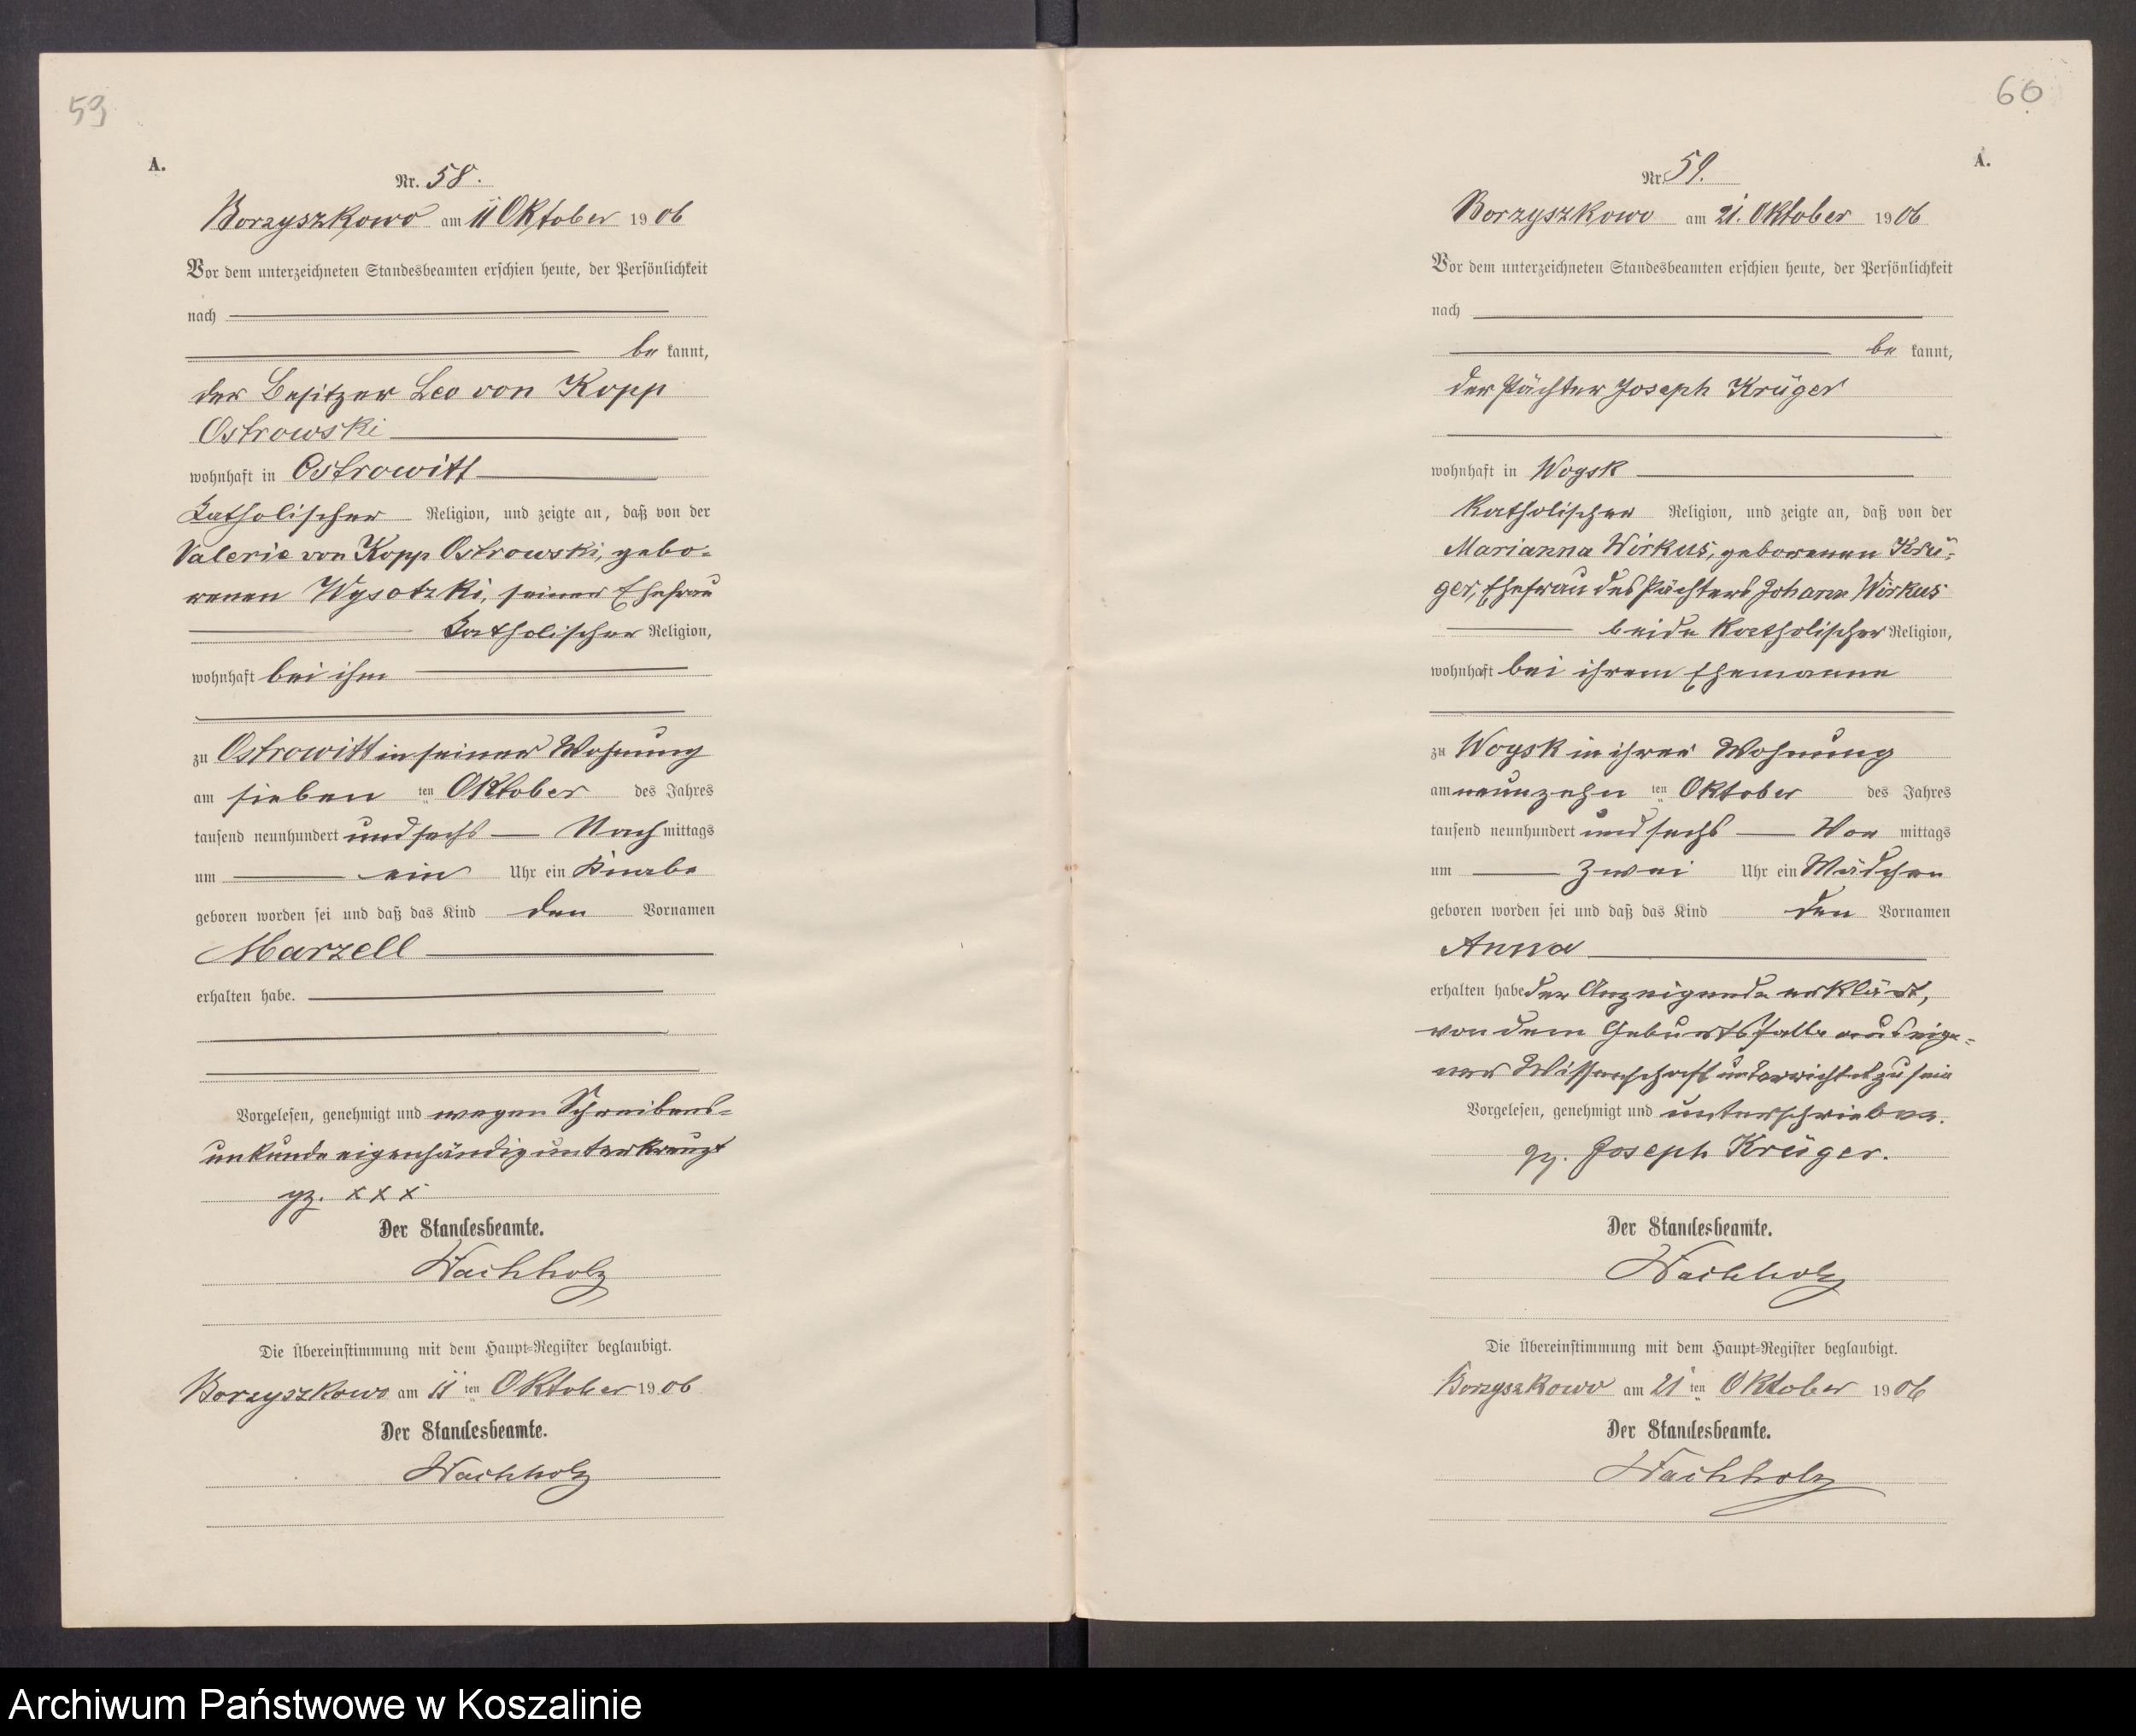 59
A.
Nr. 58.
Borzyszkowo am 11 Oktober 1906
Vor dem unterzeichneten Standesbeamten erschien heute, der Persönlichkeit
nach
be kannt,
der Besitzer Leo von Kopp
Ostrowski
wohnhaft in Ostrowitt
katholischer Religion, und zeigte an, daß von der
Valeria von Kopp Ostrowski, gebo-
renen Wysotzki, seiner Ehefrau
katholischer Religion,
wohnhaft bei ihm
zu Ostrowitt in seiner Wohnung
am sieben ten Oktober des Jahres
tausend neunhundert und sechs Nach mittags
um ein Uhr ein Knabe
geboren worden sei und daß das Kind den Vornamen
Marzell
erhalten habe.
Vorgelesen, genehmigt und wegen Schreibens-
unkunde eigenhändig unterkreuzt
gz. x x x
Der Standesbeamte.
Wachholz
Die Übereinstimmung mit dem Haupt-Register beglaubigt.
Borzyszkowo am 11 ten Oktober 1906
Der Standesbeamte.
Wachholz
60
A.
Nr. 59.
Borzyszkowo am 21. Oktober 1906
Vor dem unterzeichneten Standesbeamten erschien heute, der Persönlichkeit
nach
be kannt,
der Pächter Joseph Krüger
wohnhaft in Woysk
katholischer Religion, und zeigte an, daß von der
Marianna Wirkus, geborenen Krü-
ger, Ehefrau des Pächters Johann Wirkus
beide katholischer Religion,
wohnhaft bei ihrem Ehemanne
zu Woysk in ihrer Wohnung
am neunzehn ten Oktober des Jahres
tausend neunhundert und sechs Vor mittags
um zwei Uhr ein Mädchen
geboren worden sei und daß das Kind den Vornamen
Anna
erhalten habe der Anzeigende erklärt,
von dem Geburtsfalle aus eige-
ner Wissenschaft unterrichtet zu sein
Vorgelesen, genehmigt und unterschrieben.
gz. Joseph Krüger.
Der Standesbeamte.
Wachholz
Die Übereinstimmung mit dem Haupt-Register beglaubigt.
Borzyszkowo am 21 ten Oktober 1906
Der Standesbeamte.
Wachholz
Archiwum Państwowe w Koszalinie